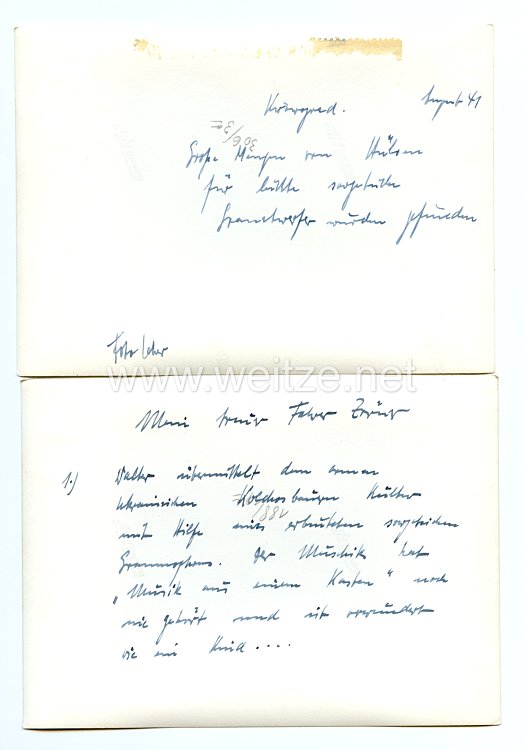 Kirowograd. August 41
306/3
Große Mengen von Hülsen
für
Granatwerfer wurden gefunden
Foto
www.weitze.net
Mein treuer Fahrer
1.) Walter übermittelt den armen
ukrainischen Kolchosbauern Kultur
188/
mit Hilfe eines erbeuteten sowjetischen
Grammophons. Der Muschik hat
„Musik aus einem Kasten" noch
nie gehört und ist verwundert
wie ein Kind ....